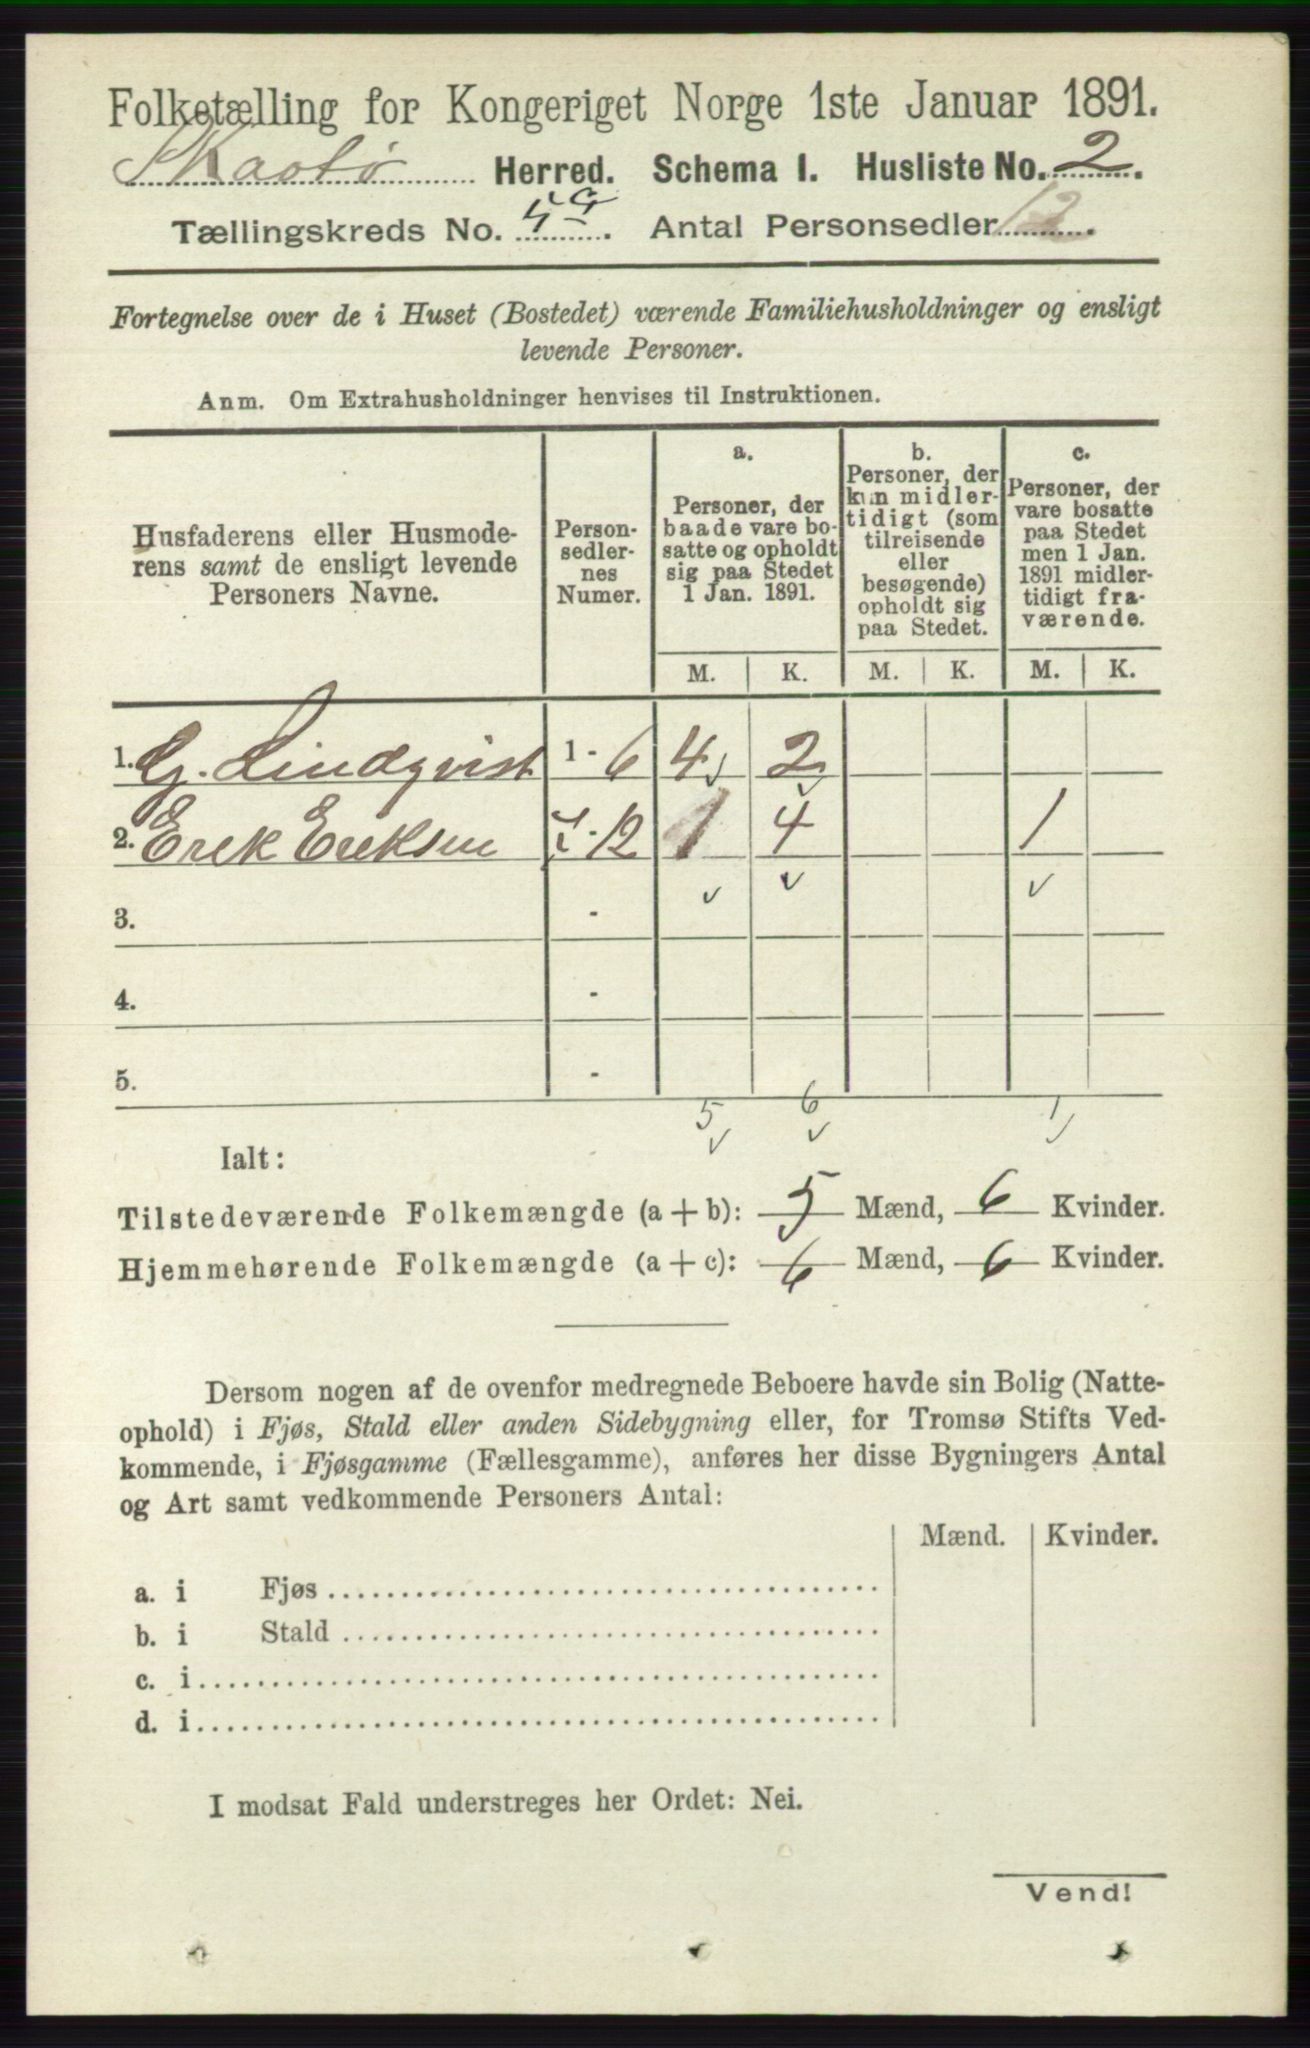 Folketælling for Kongeriget Norge 1ste Januar 1891.
Skaatø Herred. Schema I. Husliste No. 2.
Tællingskreds No. 5a. Antal Personsedler 12.
Fortegnelse over de i Huset (Bostedet) værende Familiehusholdninger og ensligt
levende Personer.
Anm. Om Extrahusholdninger henvises til Instruktionen.
Husfaderens eller Husmode-
rens samt de ensligt levende
Personers Navne.
Person-
sedler-
nes
Numer.
a.
Personer, der
baade vare bo-
satte og opholdt
sig paa Stedet
1 Jan. 1891.
b.
Personer, der
kun midler-
tidigt (som
tilreisende
eller
besøgende)
opholdt sig
paa Stedet.
c.
Personer, der
vare bosatte
paa Stedet
men 1 Jan.
1891 midler-
tidigt fra-
værende.
M. K. M. K. M. K.
1. G. Lindqvist 1 - 6 4 2
2. Erek Ereksen 7 - 12 1 4 1
3. -
4. -
5. -
5 6 1
Ialt:
Tilstedeværende Folkemængde (a + b): 5 Mænd, 6 Kvinder.
Hjemmehørende Folkemængde (a + c): 6 Mænd, 6 Kvinder.
Dersom nogen af de ovenfor medregnede Beboere havde sin Bolig (Natte-
ophold) i Fjøs, Stald eller anden Sidebygning eller, for Tromsø Stifts Ved-
kommende, i Fjøsgamme (Fællesgamme), anføres her disse Bygningers Antal
og Art samt vedkommende Personers Antal:
Mænd. Kvinder.
a. i Fjøs
b. i Stald
c. i
d. i
I modsat Fald understreges her Ordet: Nei.
Vend!